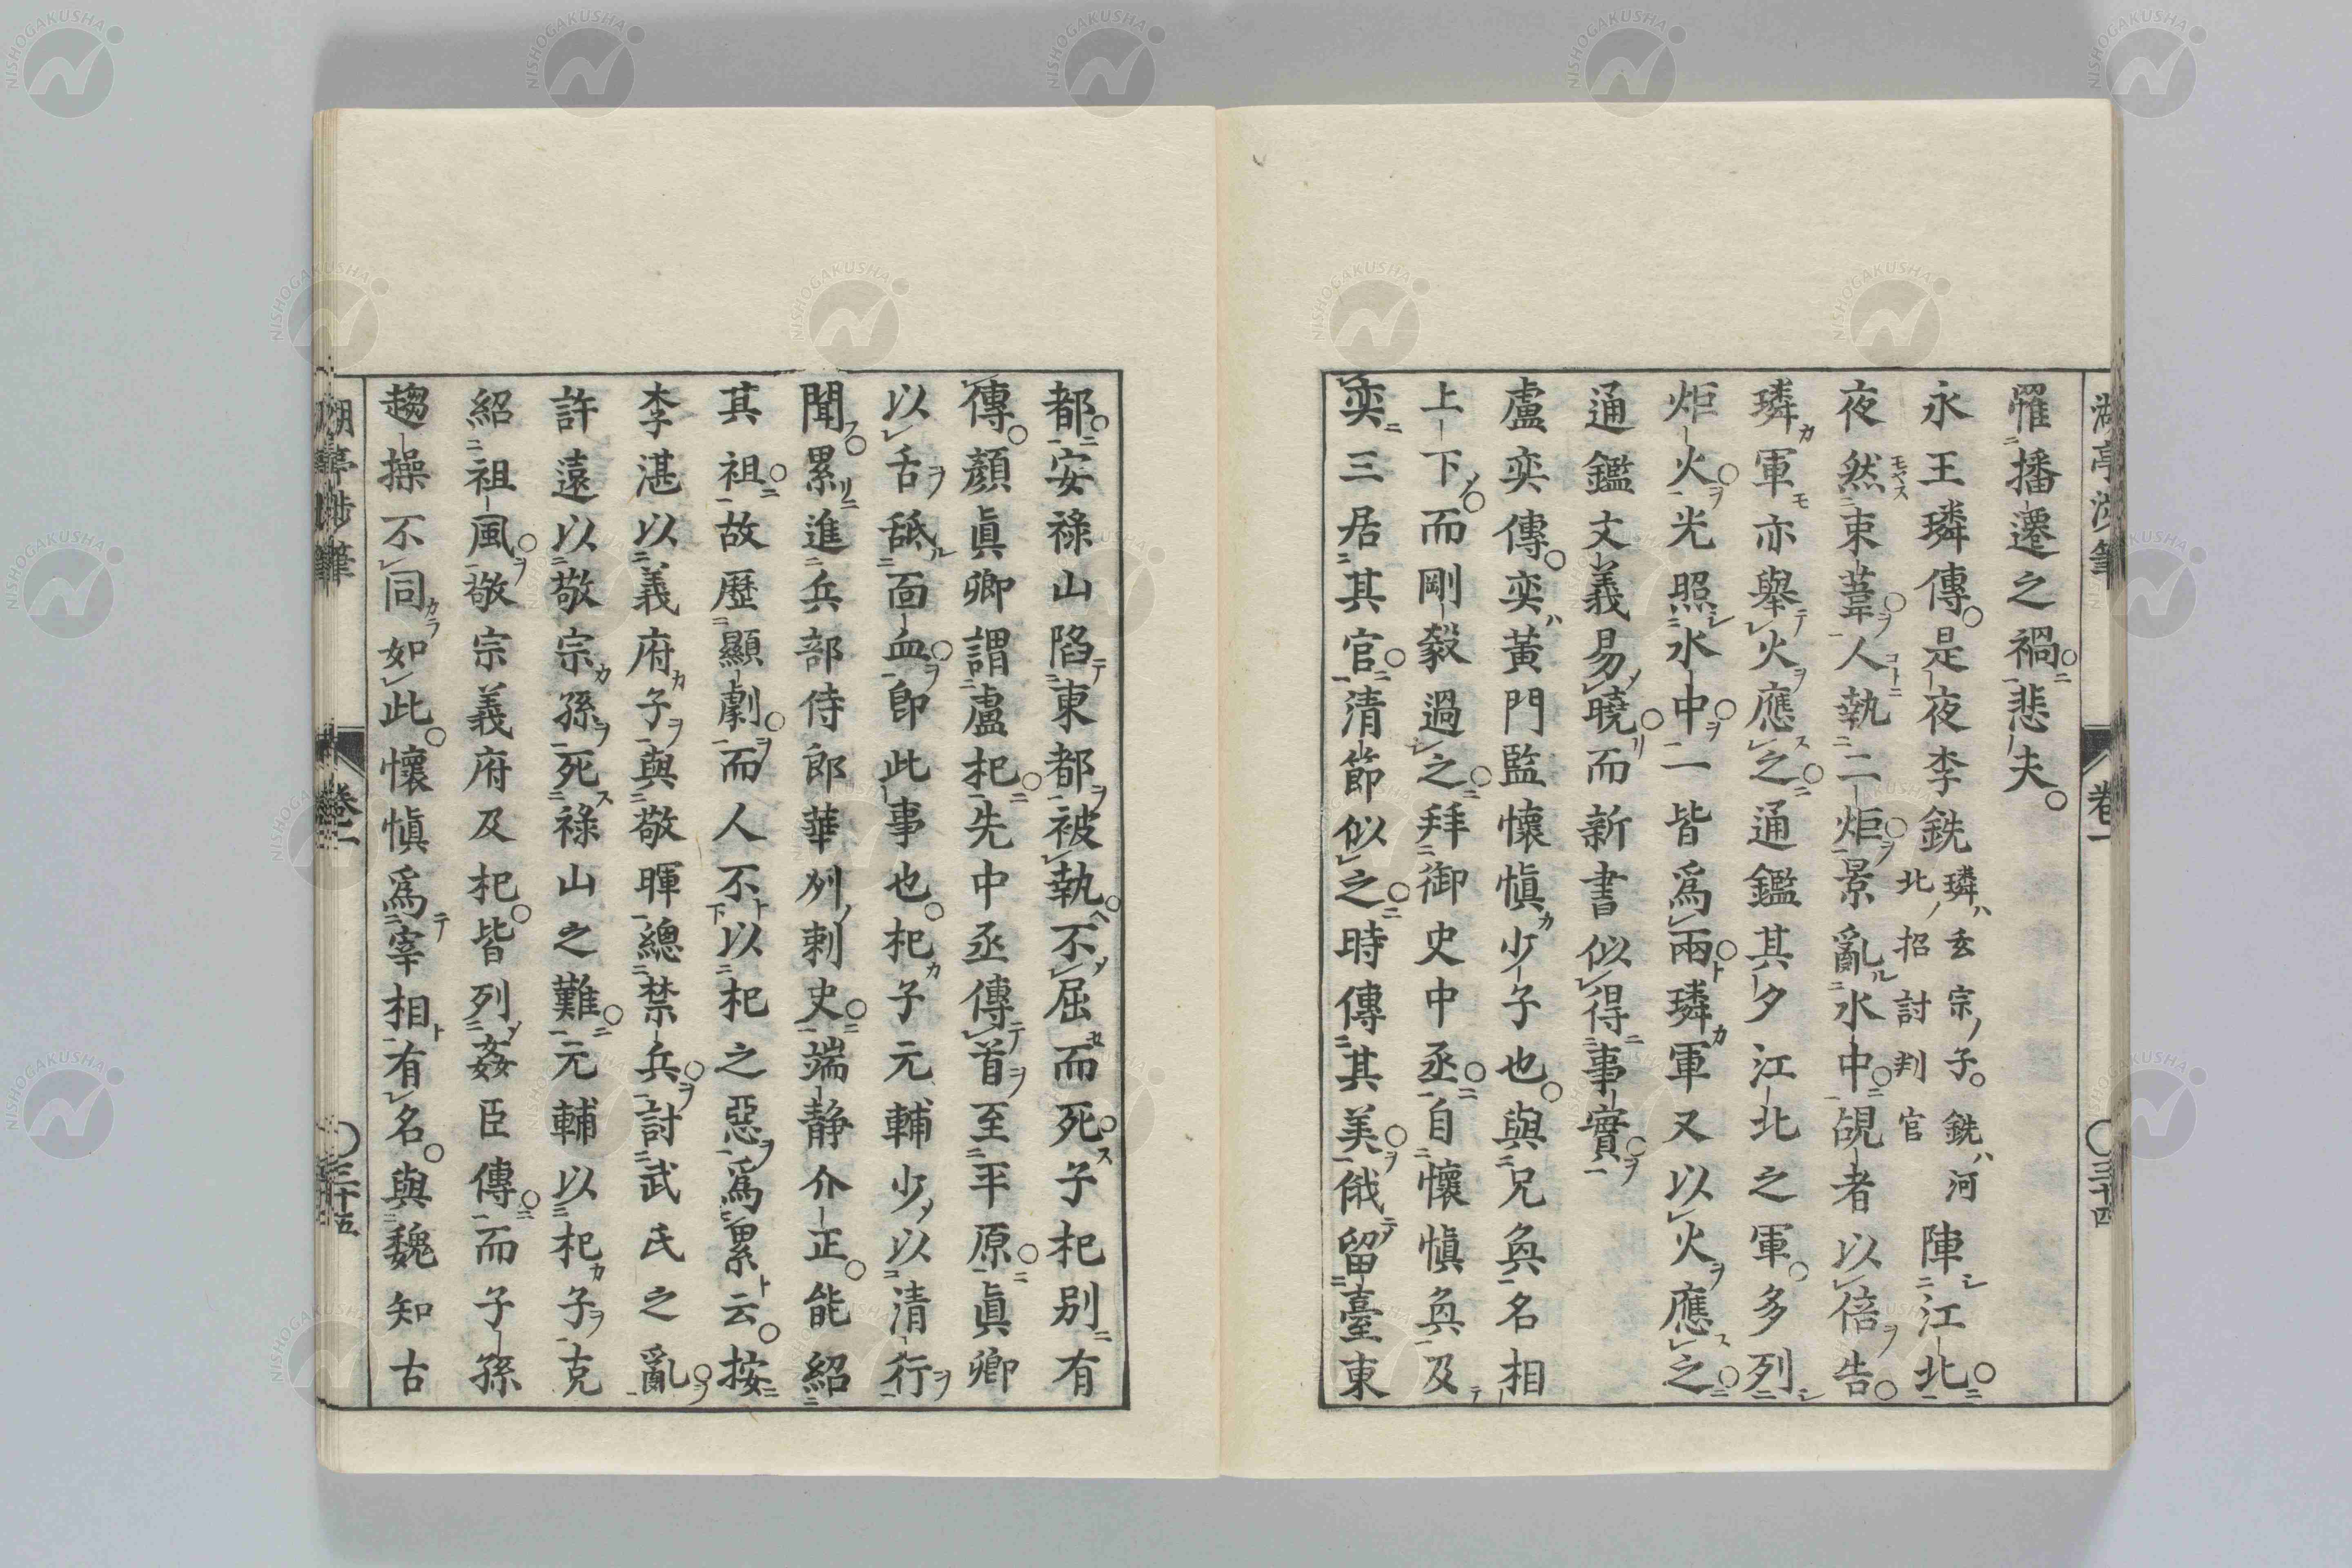 罹播遷之禍悲夫
永王璘傳是夜李銑璘ハ玄宗ノ子銑ハ河北ノ招討判官陣江北
夜然束葦人執二炬景亂水中覘者以倍告
璘軍亦舉火應之通鑑其夕江北之軍多列
炬火光照水中一皆爲兩璘軍又以火應之
通鑑文義易曉而新書似得事實
盧奕傳奕黃門監懷愼少子也與兄奐名相
上下而剛毅過之拜御史中丞自懷愼奐及
奕三居其官清節似之時傳其美俄留臺東
都安祿山陷東都被執不屈而死子杞別有
傳顏眞卿謂盧杞先中丞傳首至平原眞卿
以舌舐面血卽此事也杞子元輔少以清行
聞累進兵部侍郎華州刺史端静介正能紹
其祖故歷顯劇而人不以杞之惡爲累云按
李湛以義府子與敬暉總禁兵討武氏之亂
許遠以敬宗孫死祿山之難元輔以杞子克
紹祖風敬宗義府及杞皆列姦臣傳而子孫
趨操不同如此懷愼爲宰相有名與魏知古
湖亭涉筆 卷一 三十四
湖亭涉筆 卷一 三十五
NISHOGAKUSHA